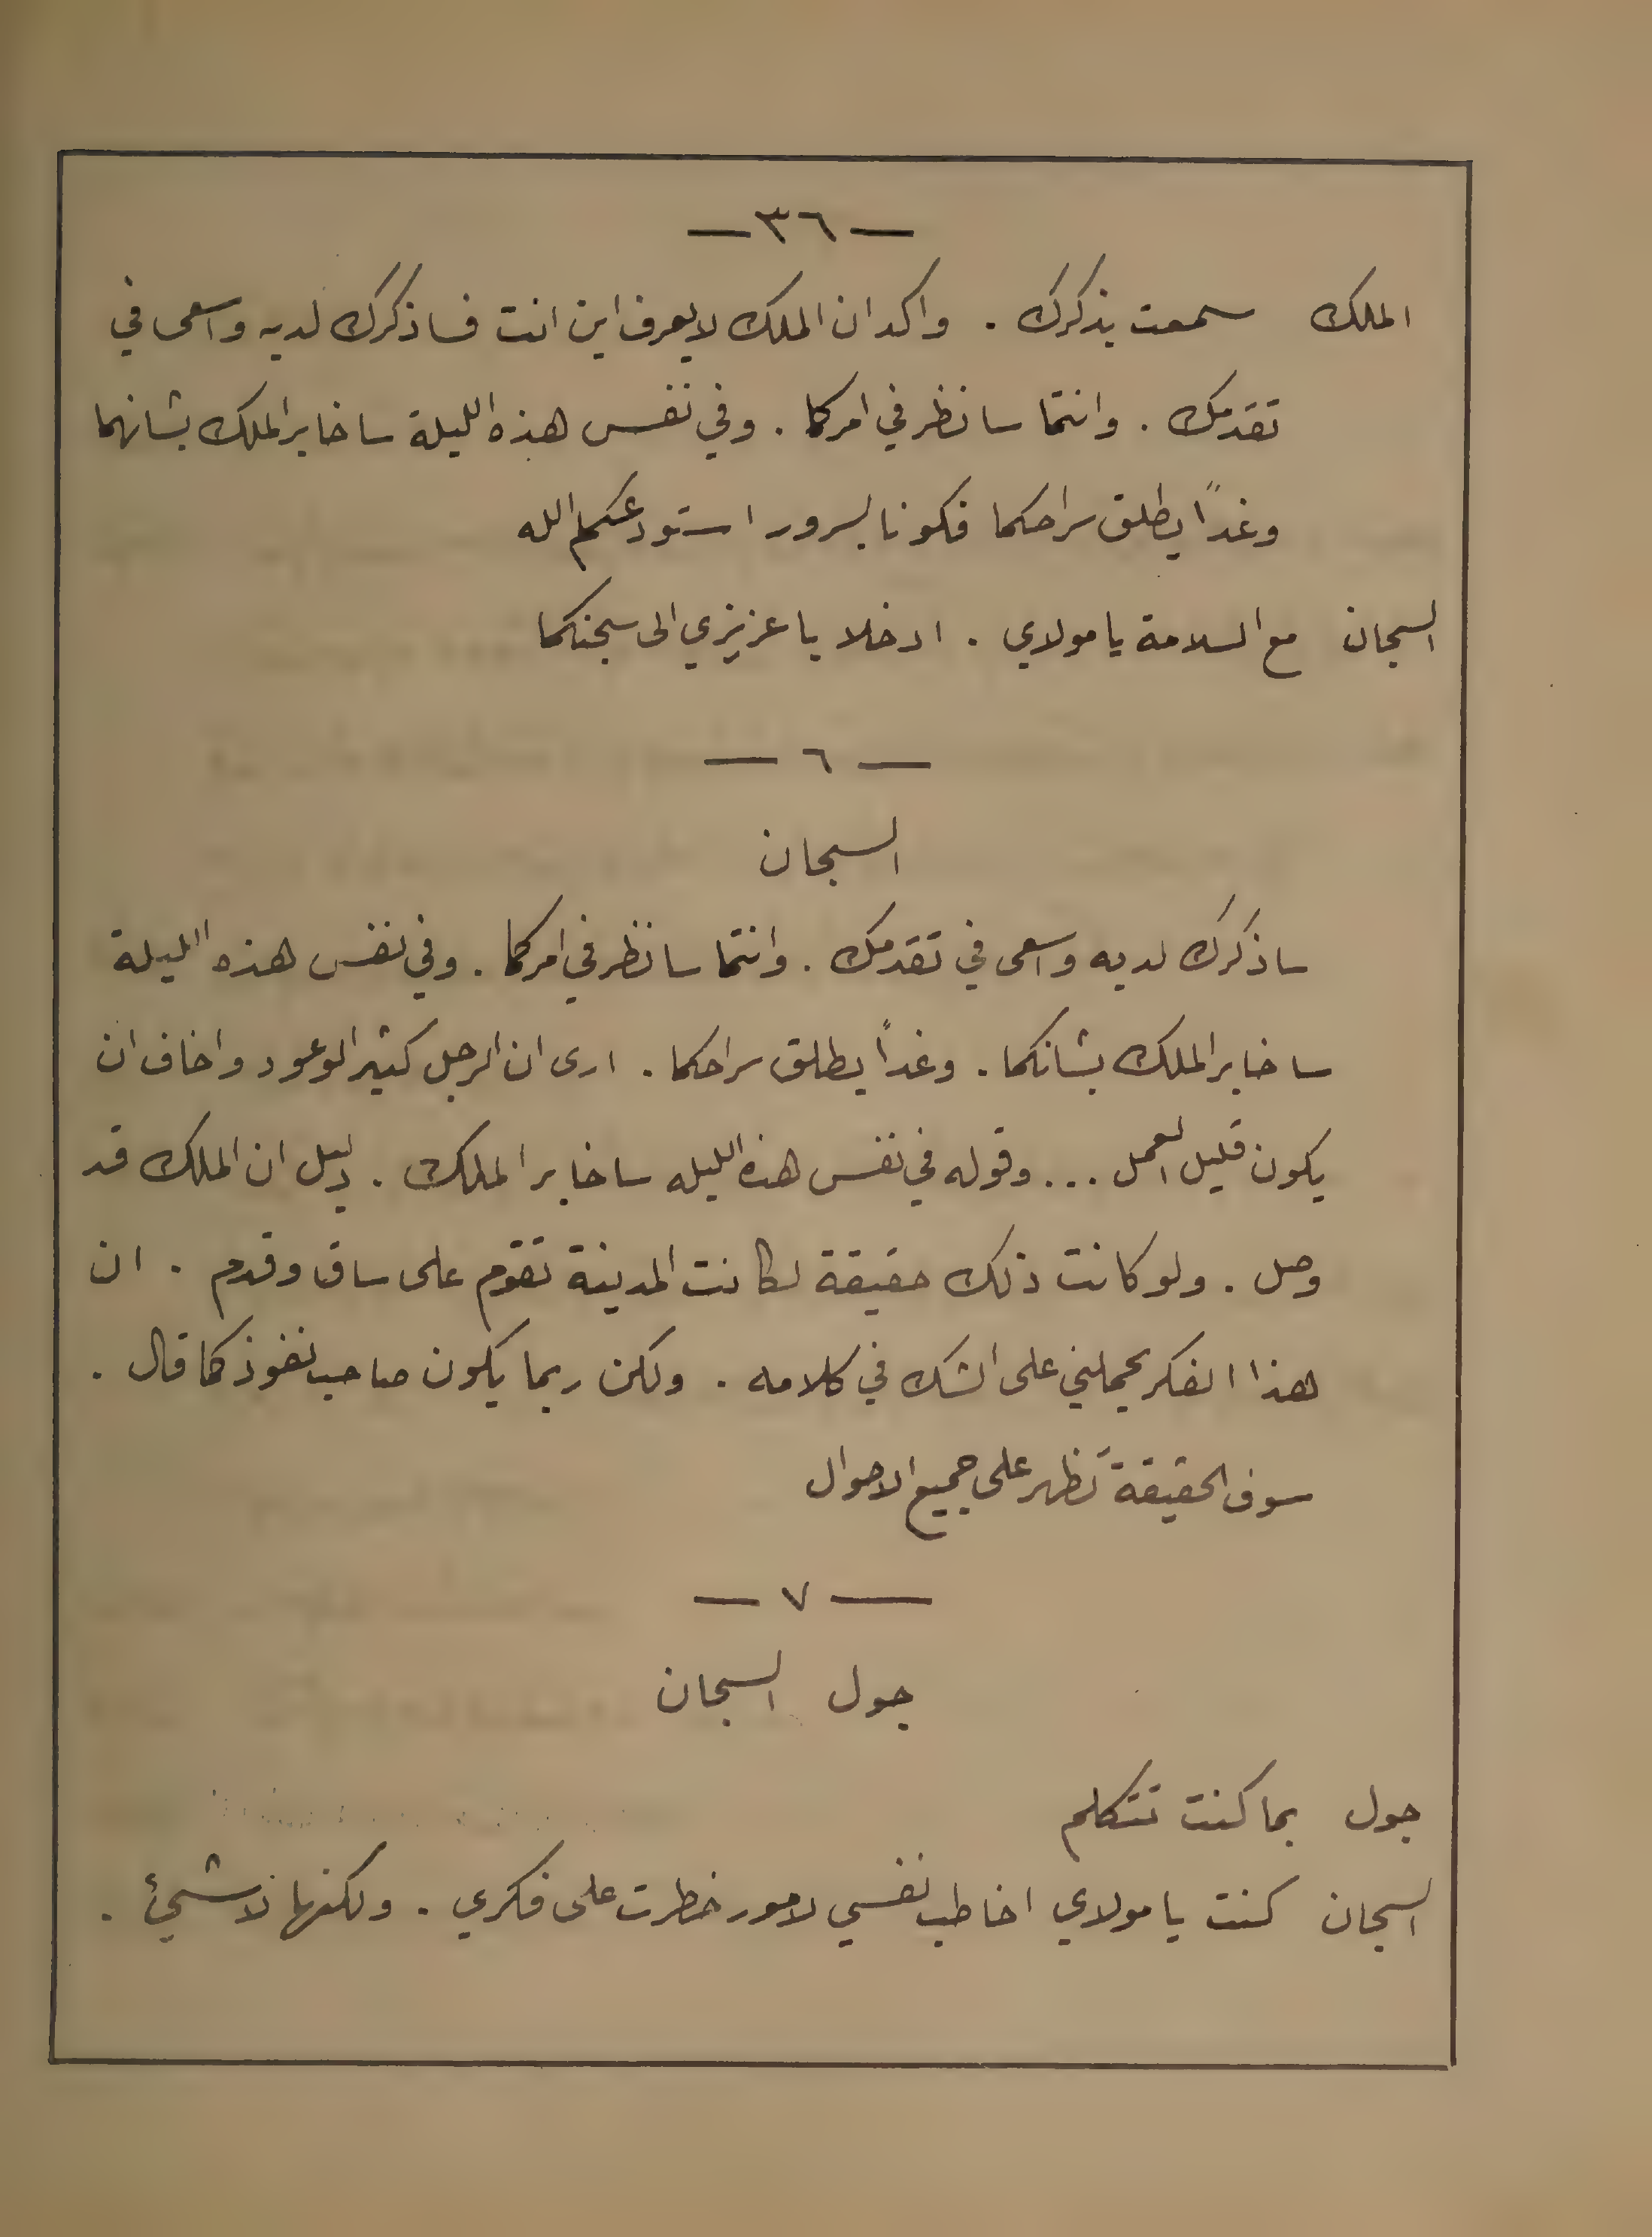 — ٣٦ —
الملك سمعت بذكرك . واكد ان الملك لا يعرف اين انت فساذكرك لديه واسعى في
تقدمك . وانتما سانظر في امركما . وفي نفس هذه الليلة ساخابر الملك بشانهما
وغداً يطلق سراحكما فكونا بسرور استودعكم الله
السجان مع السلامة يا مولاي . ادخلا يا عزيزي الى سجنكما
— ٦ —
السجان
ساذكرك لديه واسعى في تقدمك . وانتما سانظر في امركما . وفي نفس هذه الليلة
ساخابر الملك بشانكما . وغداً يطلق سراحكما . ارى ان الرجل كثير الوعود واخاف ان
يكون قليل العمل ... وقوله في نفس هذه الليله ساخابر الملك . دليل ان الملك قد
وصل . ولو كانت ذلك حقيقة لكانت المدينة تقوم على ساق وقدم . ان
هذا الفكر يحملني على الشك في كلامه . ولكن ربما يكون صاحب نفوذ كما قال .
سوف الحقيقة تظهر على جميع الاحوال
— ٧ —
جول السجان
جول بما كنت تتكلم
السجان كنت يا مولاي اخاطب نفسي لامور خطرت على فكري . ولكنها لاشيئ .